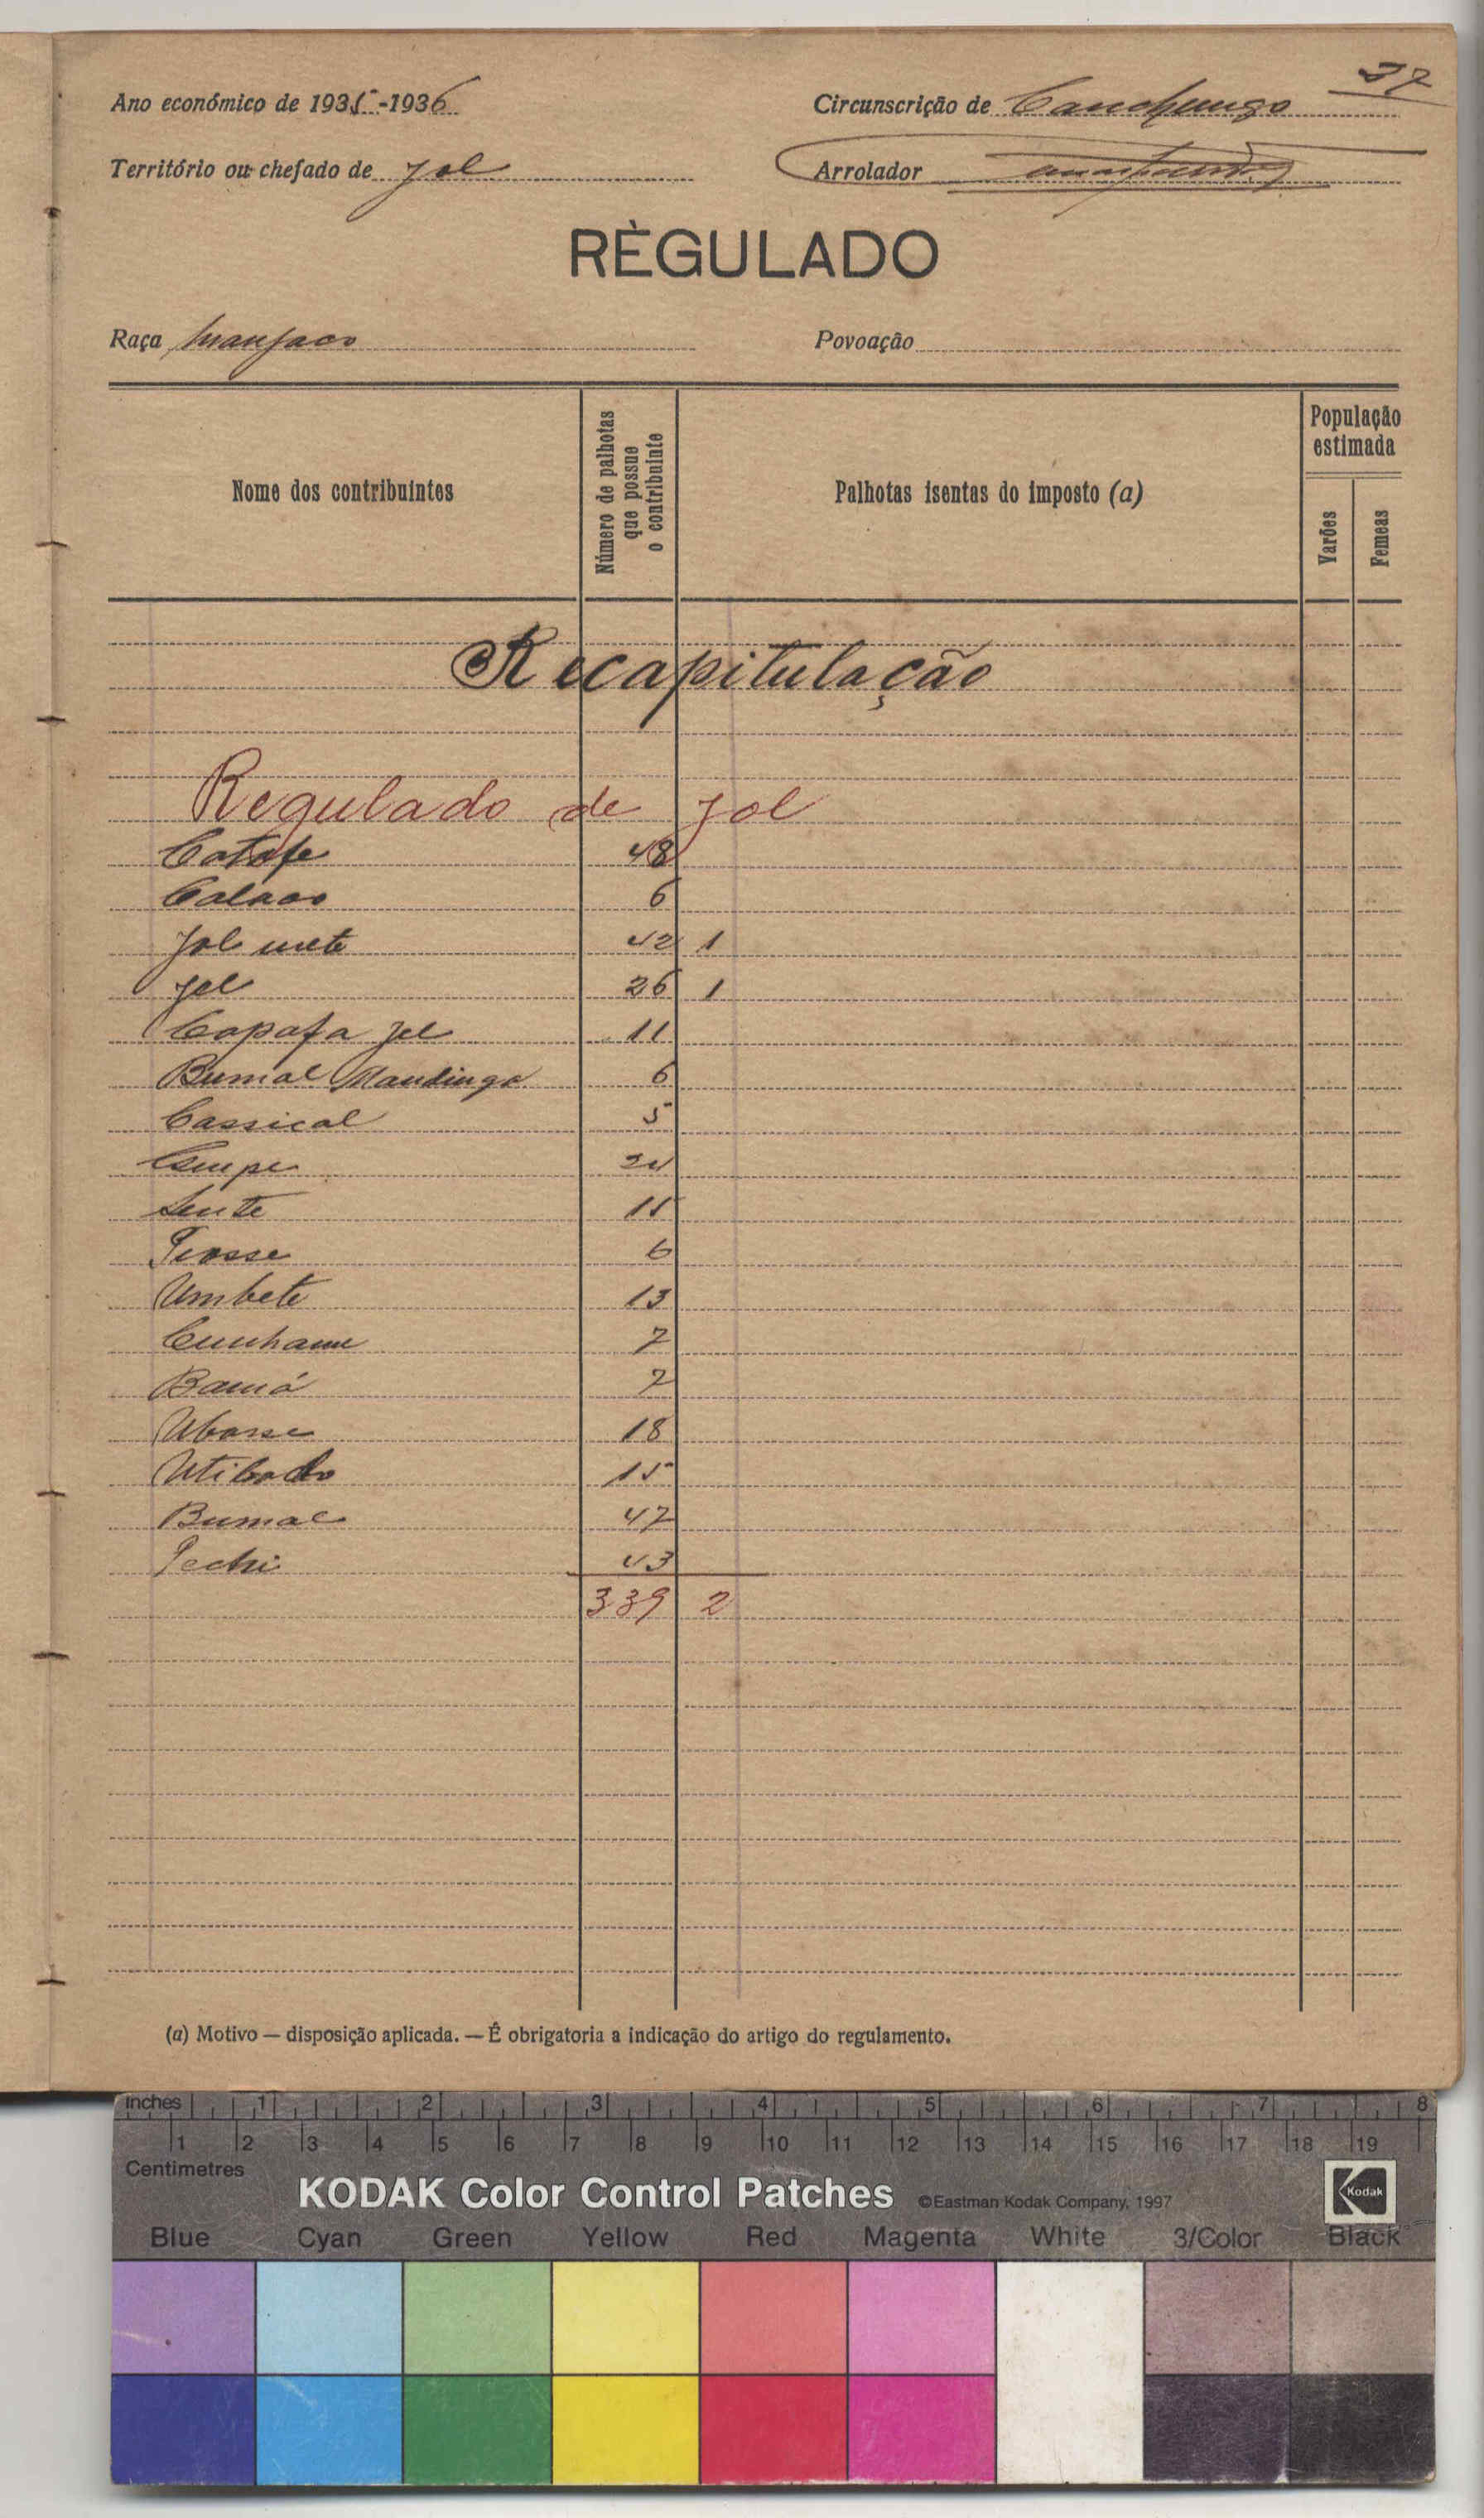 37
Ano económico de 1935-1936
Circunscrição de Canchungo
Território ou chefado de Jol
Arrolador
RÈGULADO
Raça Manjaco
Povoação
Nome dos contribuintes
Número de palhotas que possue o contribuinte
Palhotas isentas do imposto (a)
População estimada
Varões
Femeas
Recapitulação
Regulado de Jol
Catafe 48
Calaco 6
Jol mete 42 1
Jel 26 1
Capafa Jel 11
Bumal Mandinga 6
Cassical 5
24
Lente 15
6
Umbete 13
Cunhame 7
Bamá 7
18
15
Bumal 47
Pechi 43
339 2
(a) Motivo — disposição aplicada. — É obrigatoria a indicação do artigo do regulamento.
inches 1 2 3 4 5 6 7 8
1 2 3 4 5 6 7 8 9 10 11 12 13 14 15 16 17 18 19
Centimetres
KODAK Color Control Patches ©Eastman Kodak Company, 1997
Kodak
Blue Cyan Green Yellow Red Magenta White 3/Color Black